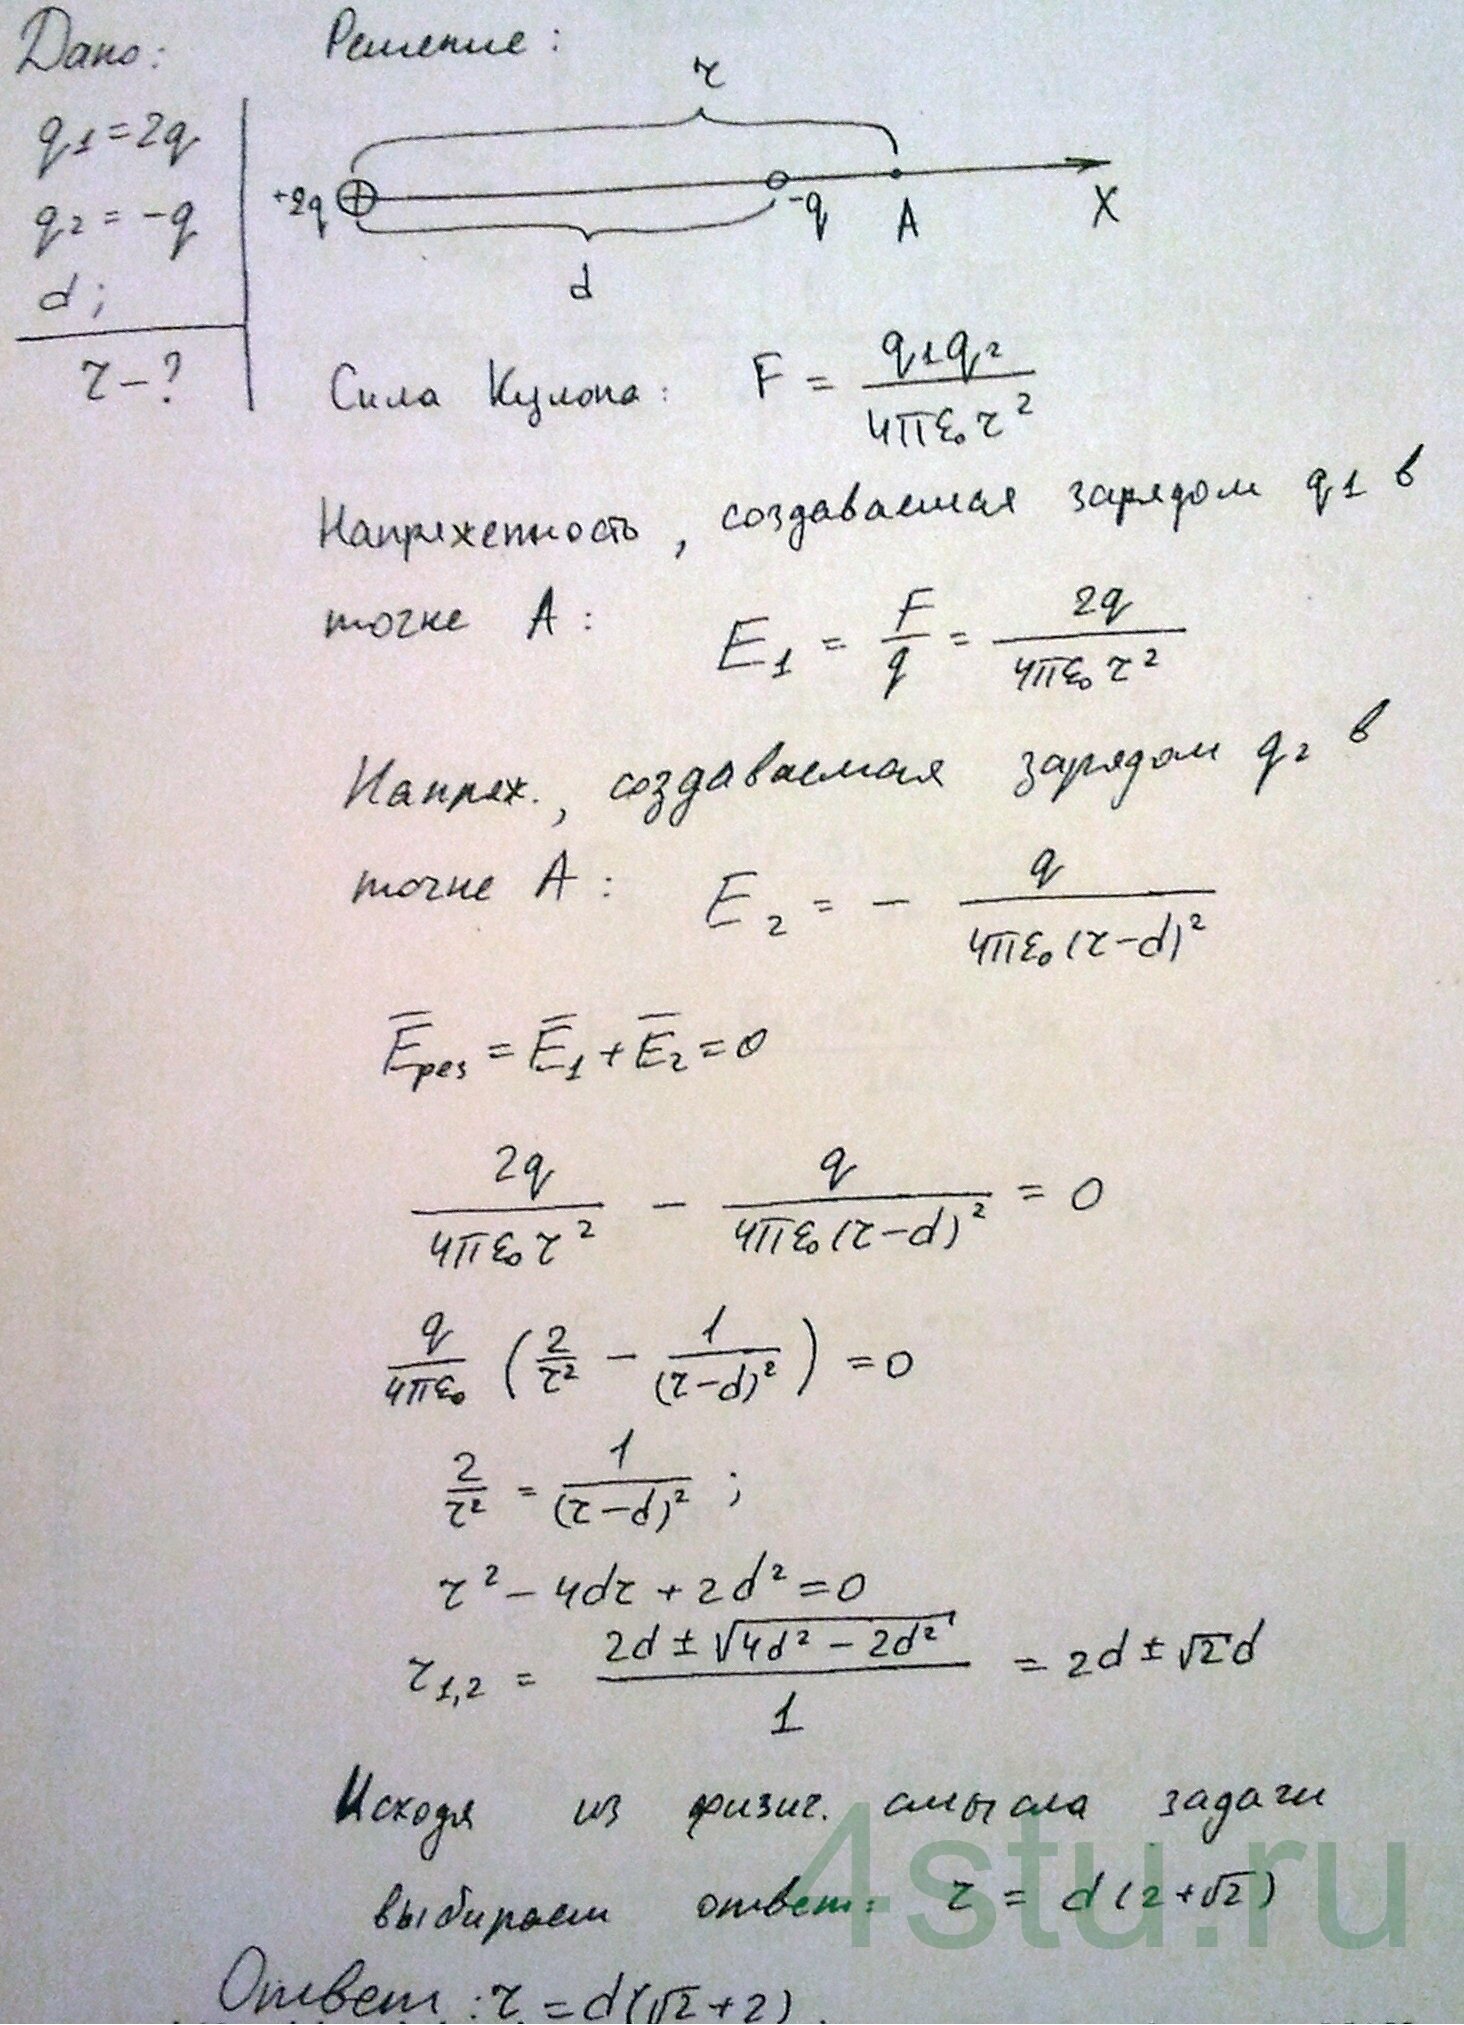 Дано:
Решение:
q1 = 2q
q2 = -q
d;
r - ?
r
+2q
-q
A
X
d
Сила Кулона: F = q1q2 / 4πε0r²
Напряженность, создаваемая зарядом q1 в
точке A: E1 = F/q = 2q / 4πε0r²
Напряж., создаваемая зарядом q2 в
точке A: E2 = - q / 4πε0(r-d)²
E̅рез = E̅1 + E̅2 = 0
2q / 4πε0r² - q / 4πε0(r-d)² = 0
q / 4πε0 (2/r² - 1/(r-d)²) = 0
2/r² = 1/(r-d)² ;
r² - 4dr + 2d² = 0
r1,2 = (2d ± √(4d² - 2d²)) / 1 = 2d ± √2d
Исходя из физич. смысла задачи
выбираем ответ: r = d(2+√2)
Ответ: r = d(√2+2).
4stu.ru